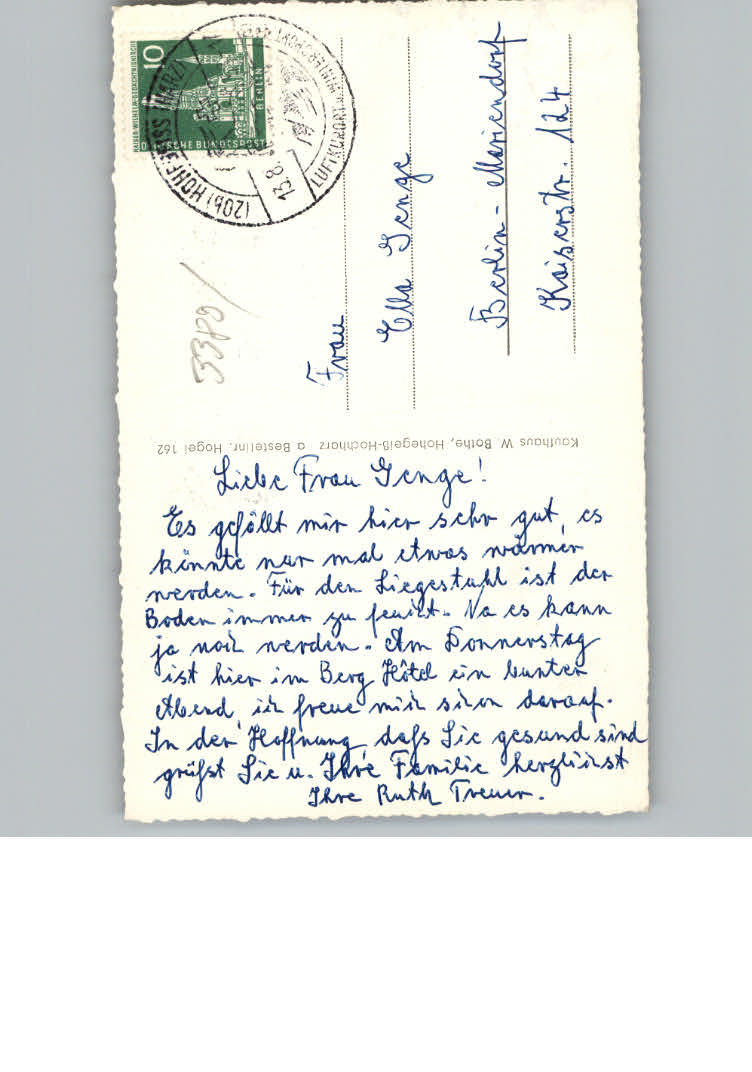 10
KAISER-WILHELM-GEDÄCHTNISKIRCHE
DEUTSCHE BUNDESPOST
BERLIN
(20b) HOHEGEISS (HARZ)
13.8.
LUFTKURORT
3389
Frau
Ella Genge
Berlin-Mariendorf
Kaiserstr. 124
Kaufhaus W. Bothe, Hohegeiß-Hochharz a Bestellnr. Hogei 162
Liebe Frau Genge!
Es gefällt mir hier sehr gut, es
könnte nur mal etwas wärmer
werden. Für den Liegestuhl ist der
Boden immer zu feucht. Na es kann
ja noch werden. Am Donnerstag
ist hier im Berg Hôtel ein bunter
Abend, ich freue mich schon darauf.
In der Hoffnung, daß Sie gesund sind
grüßt Sie u. Ihre Familie herzlichst
Ihre Ruth Treuer.